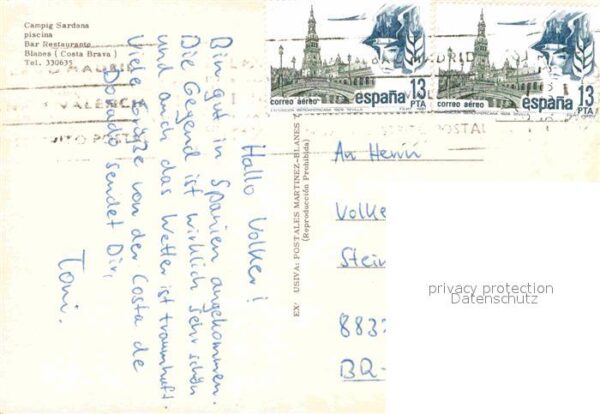 Campig Sardana
piscina
Bar Restaurante
Blanes (Costa Brava)
Tel. 330635
Hallo Volker!
Bin gut in Spanien angekommen.
Die Gegend ist wirklich sehr schön
und auch das Wetter ist traumhaft.
Viele Grüße von der Costa de
Dorado sendet Dir,
Toni.
EX USIVA: POSTALES MARTINEZ-BLANES
(Reproducción Prohibida)
correo aéreo españa 13 PTA
correo aéreo españa 13 PTA
MADRID
VALENCIA
POSTAL
An Herrn
Volke
Stein
883
BR-
privacy protection
Datenschutz